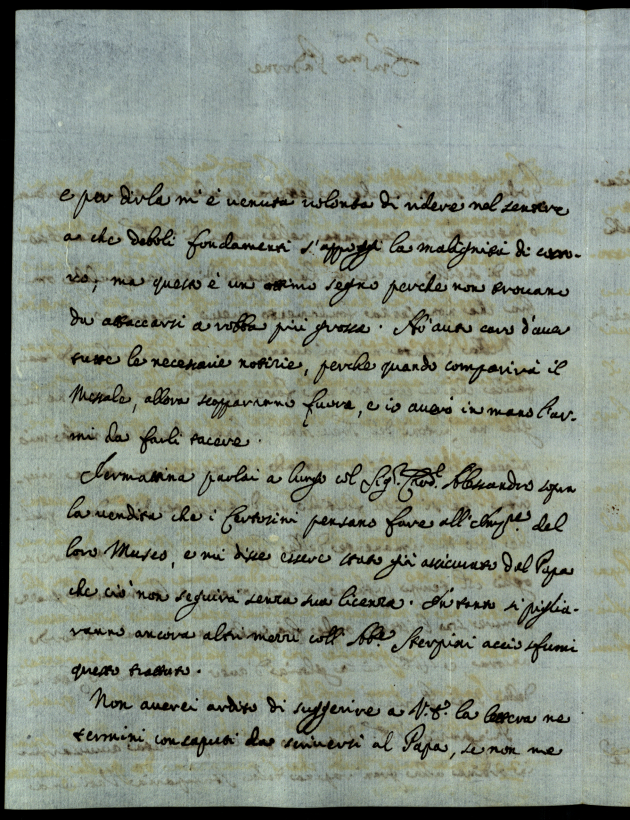 e per dirla m'è venuta volontà di ridere nel sentire
a che deboli fondamenti s'appoggi la malignità di costo-
ro, ma questo è un ottimo segno perche non trovano
da attaccarsi a robba più grossa. Hò auto caro d'auer
tutte le necessarie notizie, perche quando comparirà il
Messale, allora scapparanno fuora, e io auerò in mano l'ar-
mi da farli tacere.
Iermattina parlai a lungo col Sig.r Card.l Alessandro sopra
la vendita che i Certosini pensano fare all'Imp.re del
loro Museo, e mi disse essere stato già assicurato dal Papa
che ciò non seguirà senza sua licenza. Intanto si piglia-
ranno ancora altri mezzi coll'Abb.e Sterpini acciò sfumi
questo trattato.
Non auerei ardito di suggerire a V.S. la lettera ne
termini con saputi da scriuersi al Papa, se non me